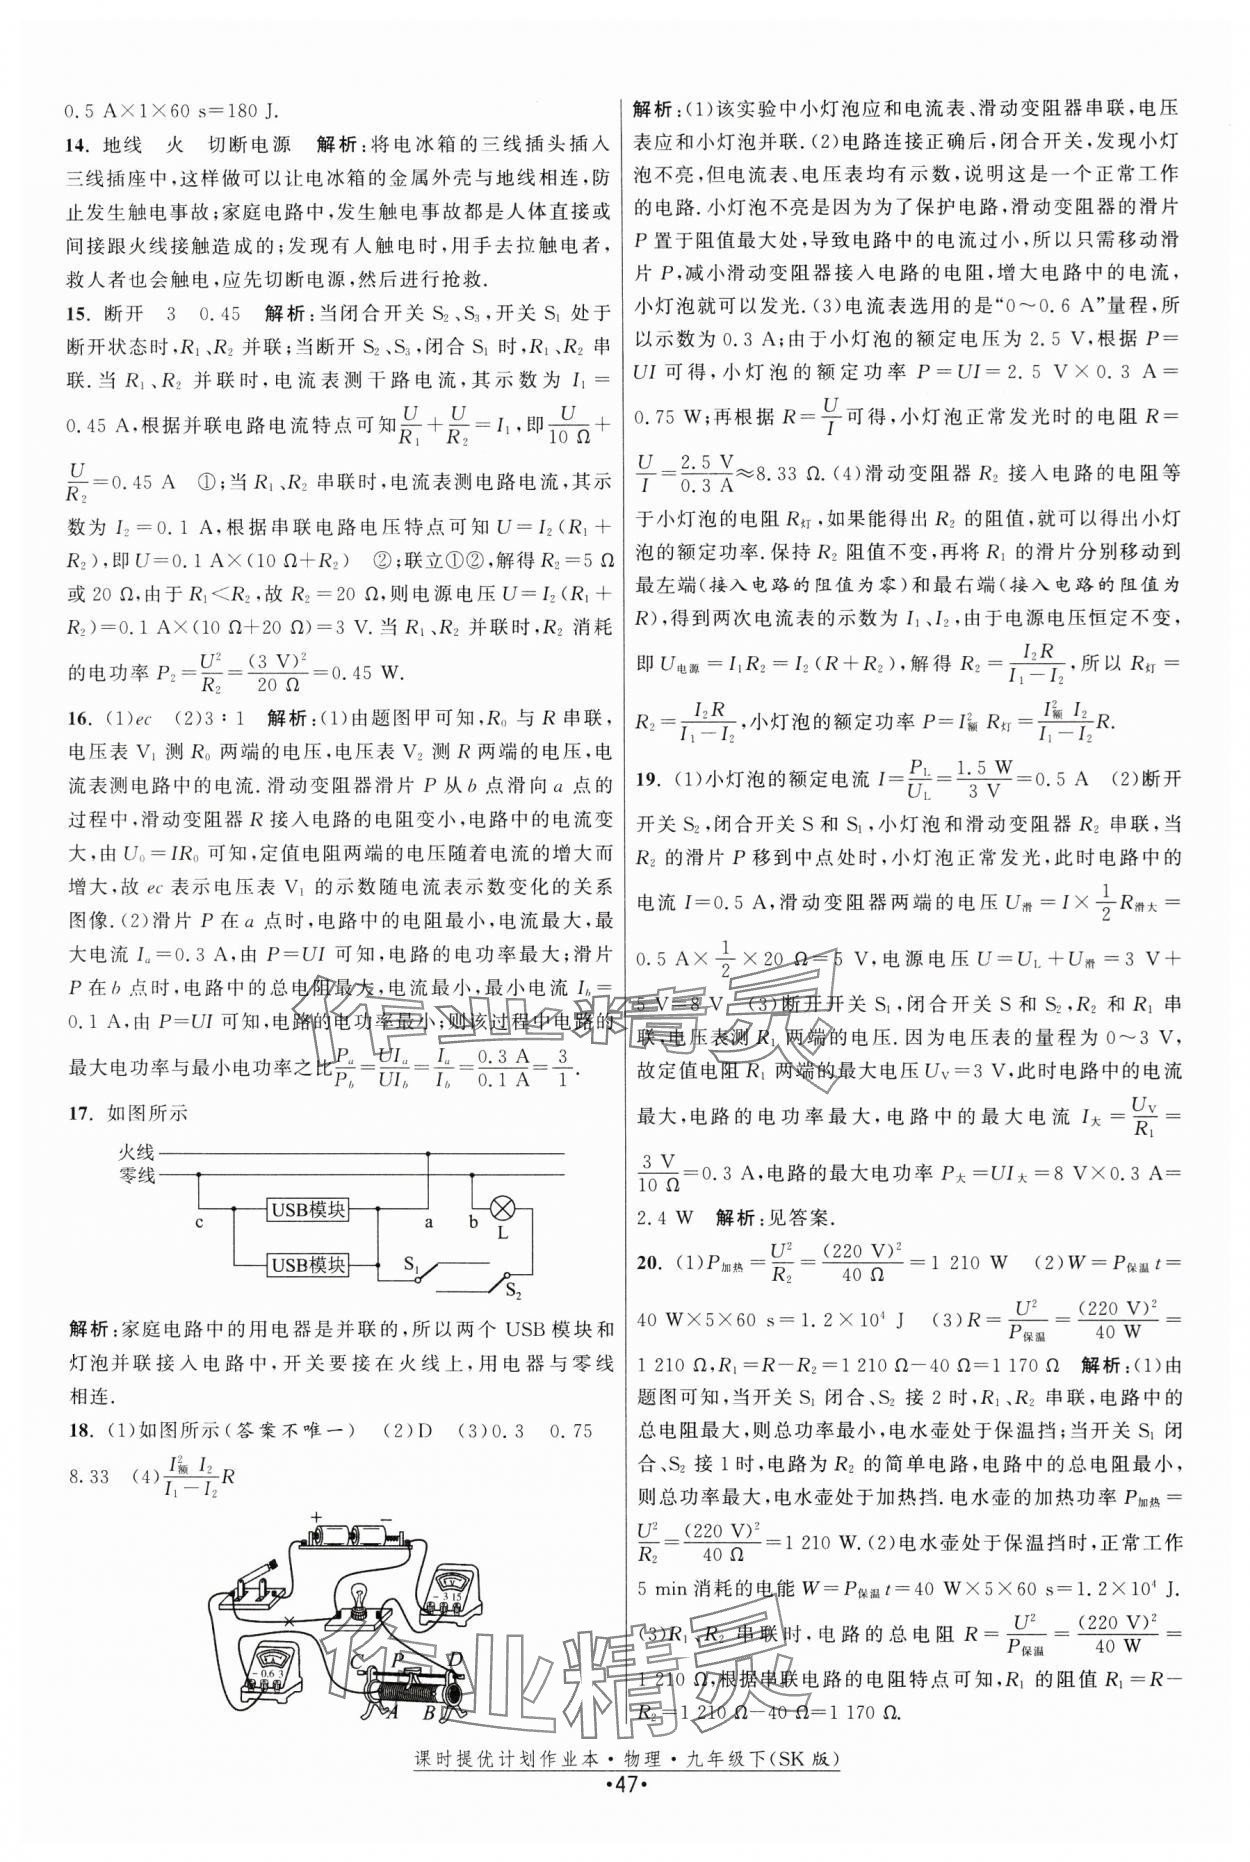 0.5 A×1×60 s=180 J.
14. 地线 火 切断电源 解析:将电冰箱的三线插头插入
三线插座中,这样做可以让电冰箱的金属外壳与地线相连,防
止发生触电事故;家庭电路中,发生触电事故都是人体直接或
间接跟火线接触造成的;发现有人触电时,用手去拉触电者,
救人者也会触电,应先切断电源,然后进行抢救.
15. 断开 3 0.45 解析:当闭合开关 S₂、S₃,开关 S₁ 处于
断开状态时,R₁、R₂ 并联;当断开 S₂、S₃,闭合 S₁ 时,R₁、R₂ 串
联.当 R₁、R₂ 并联时,电流表测干路电流,其示数为 I₁=
0.45 A,根据并联电路电流特点可知U/R₁+U/R₂=I₁,即U/10 Ω+
U/R₂=0.45 A ①;当 R₁、R₂ 串联时,电流表测电路电流,其示
数为 I₂=0.1 A,根据串联电路电压特点可知 U=I₂(R₁+
R₂),即 U=0.1 A×(10 Ω+R₂) ②;联立①②,解得 R₂=5 Ω
或 20 Ω,由于 R₁<R₂,故 R₂=20 Ω,则电源电压 U=I₂(R₁+
R₂)=0.1 A×(10 Ω+20 Ω)=3 V.当 R₁、R₂ 并联时,R₂ 消耗
的电功率 P₂=U²/R₂=(3 V)²/20 Ω=0.45 W.
16. (1)ec (2)3∶1 解析:(1)由题图甲可知,R₀ 与 R 串联,
电压表 V₁ 测 R₀ 两端的电压,电压表 V₂ 测 R 两端的电压,电
流表测电路中的电流.滑动变阻器滑片 P 从 b 点滑向 a 点的
过程中,滑动变阻器 R 接入电路的电阻变小,电路中的电流变
大,由 U₀=IR₀ 可知,定值电阻两端的电压随着电流的增大而
增大,故 ec 表示电压表 V₁ 的示数随电流表示数变化的关系
图像.(2)滑片 P 在 a 点时,电路中的电阻最小,电流最大,最
大电流 Iₐ=0.3 A,由 P=UI 可知,电路的电功率最大;滑片
P 在 b 点时,电路中的总电阻最大,电流最小,最小电流 I_b=
0.1 A,由 P=UI 可知,电路的电功率最小;则该过程中电路的
最大电功率与最小电功率之比Pₐ/P_b=UIₐ/UI_b=Iₐ/I_b=0.3 A/0.1 A=3/1.
17. 如图所示
火线
零线
c USB模块 a b L
USB模块 S₁ S₂
解析:家庭电路中的用电器是并联的,所以两个 USB 模块和
灯泡并联接入电路中,开关要接在火线上,用电器与零线
相连.
18. (1)如图所示(答案不唯一) (2)D (3)0.3 0.75
8.33 (4)I²额 I₂/(I₁−I₂)R
+ −
V
− 3 15
×
A
− 0.6 3
C P D
A B
解析:(1)该实验中小灯泡应和电流表、滑动变阻器串联,电压
表应和小灯泡并联.(2)电路连接正确后,闭合开关,发现小灯
泡不亮,但电流表、电压表均有示数,说明这是一个正常工作
的电路.小灯泡不亮是因为为了保护电路,滑动变阻器的滑片
P 置于阻值最大处,导致电路中的电流过小,所以只需移动滑
片 P,减小滑动变阻器接入电路的电阻,增大电路中的电流,
小灯泡就可以发光.(3)电流表选用的是“0～0.6 A”量程,所
以示数为 0.3 A;由于小灯泡的额定电压为 2.5 V,根据 P=
UI 可得,小灯泡的额定功率 P=UI=2.5 V×0.3 A=
0.75 W;再根据 R=U/I可得,小灯泡正常发光时的电阻 R=
U/I=2.5 V/0.3 A≈8.33 Ω.(4)滑动变阻器 R₂ 接入电路的电阻等
于小灯泡的电阻 R灯,如果能得出 R₂ 的阻值,就可以得出小灯
泡的额定功率.保持 R₂ 阻值不变,再将 R₁ 的滑片分别移动到
最左端(接入电路的阻值为零)和最右端(接入电路的阻值为
R),得到两次电流表的示数为 I₁、I₂,由于电源电压恒定不变,
即 U电源=I₁R₂=I₂(R+R₂),解得 R₂=I₂R/(I₁−I₂),所以 R灯=
R₂=I₂R/(I₁−I₂),小灯泡的额定功率 P=I²额 R灯=I²额 I₂/(I₁−I₂)R.
19. (1)小灯泡的额定电流 I=P_L/U_L=1.5 W/3 V=0.5 A (2)断开
开关 S₂,闭合开关 S 和 S₁,小灯泡和滑动变阻器 R₂ 串联,当
R₂ 的滑片 P 移到中点处时,小灯泡正常发光,此时电路中的
电流 I=0.5 A,滑动变阻器两端的电压 U滑=I×1/2R滑大=
0.5 A×1/2×20 Ω=5 V,电源电压 U=U_L+U滑=3 V+
5 V=8 V (3)断开开关 S₁,闭合开关 S 和 S₂,R₂ 和 R₁ 串
联,电压表测 R₁ 两端的电压.因为电压表的量程为 0～3 V,
故定值电阻 R₁ 两端的最大电压 U_V=3 V,此时电路中的电流
最大,电路的电功率最大,电路中的最大电流 I大=U_V/R₁=
3 V/10 Ω=0.3 A,电路的最大电功率 P大=UI大=8 V×0.3 A=
2.4 W 解析:见答案.
20. (1)P加热=U²/R₂=(220 V)²/40 Ω=1 210 W (2)W=P保温t=
40 W×5×60 s=1.2×10⁴ J (3)R=U²/P保温=(220 V)²/40 W=
1 210 Ω,R₁=R−R₂=1 210 Ω−40 Ω=1 170 Ω 解析:(1)由
题图可知,当开关 S₁ 闭合、S₂ 接 2 时,R₁、R₂ 串联,电路中的
总电阻最大,则总功率最小,电水壶处于保温挡;当开关 S₁ 闭
合、S₂ 接 1 时,电路为 R₂ 的简单电路,电路中的总电阻最小,
则总功率最大,电水壶处于加热挡.电水壶的加热功率 P加热=
U²/R₂=(220 V)²/40 Ω=1 210 W.(2)电水壶处于保温挡时,正常工作
5 min 消耗的电能 W=P保温t=40 W×5×60 s=1.2×10⁴ J.
(3)R₁、R₂ 串联时,电路的总电阻 R=U²/P保温=(220 V)²/40 W=
1 210 Ω,根据串联电路的电阻特点可知,R₁ 的阻值 R₁=R−
R₂=1 210 Ω−40 Ω=1 170 Ω.
作业精灵
作业精灵
课时提优计划作业本·物理·九年级下(SK 版)
·47·